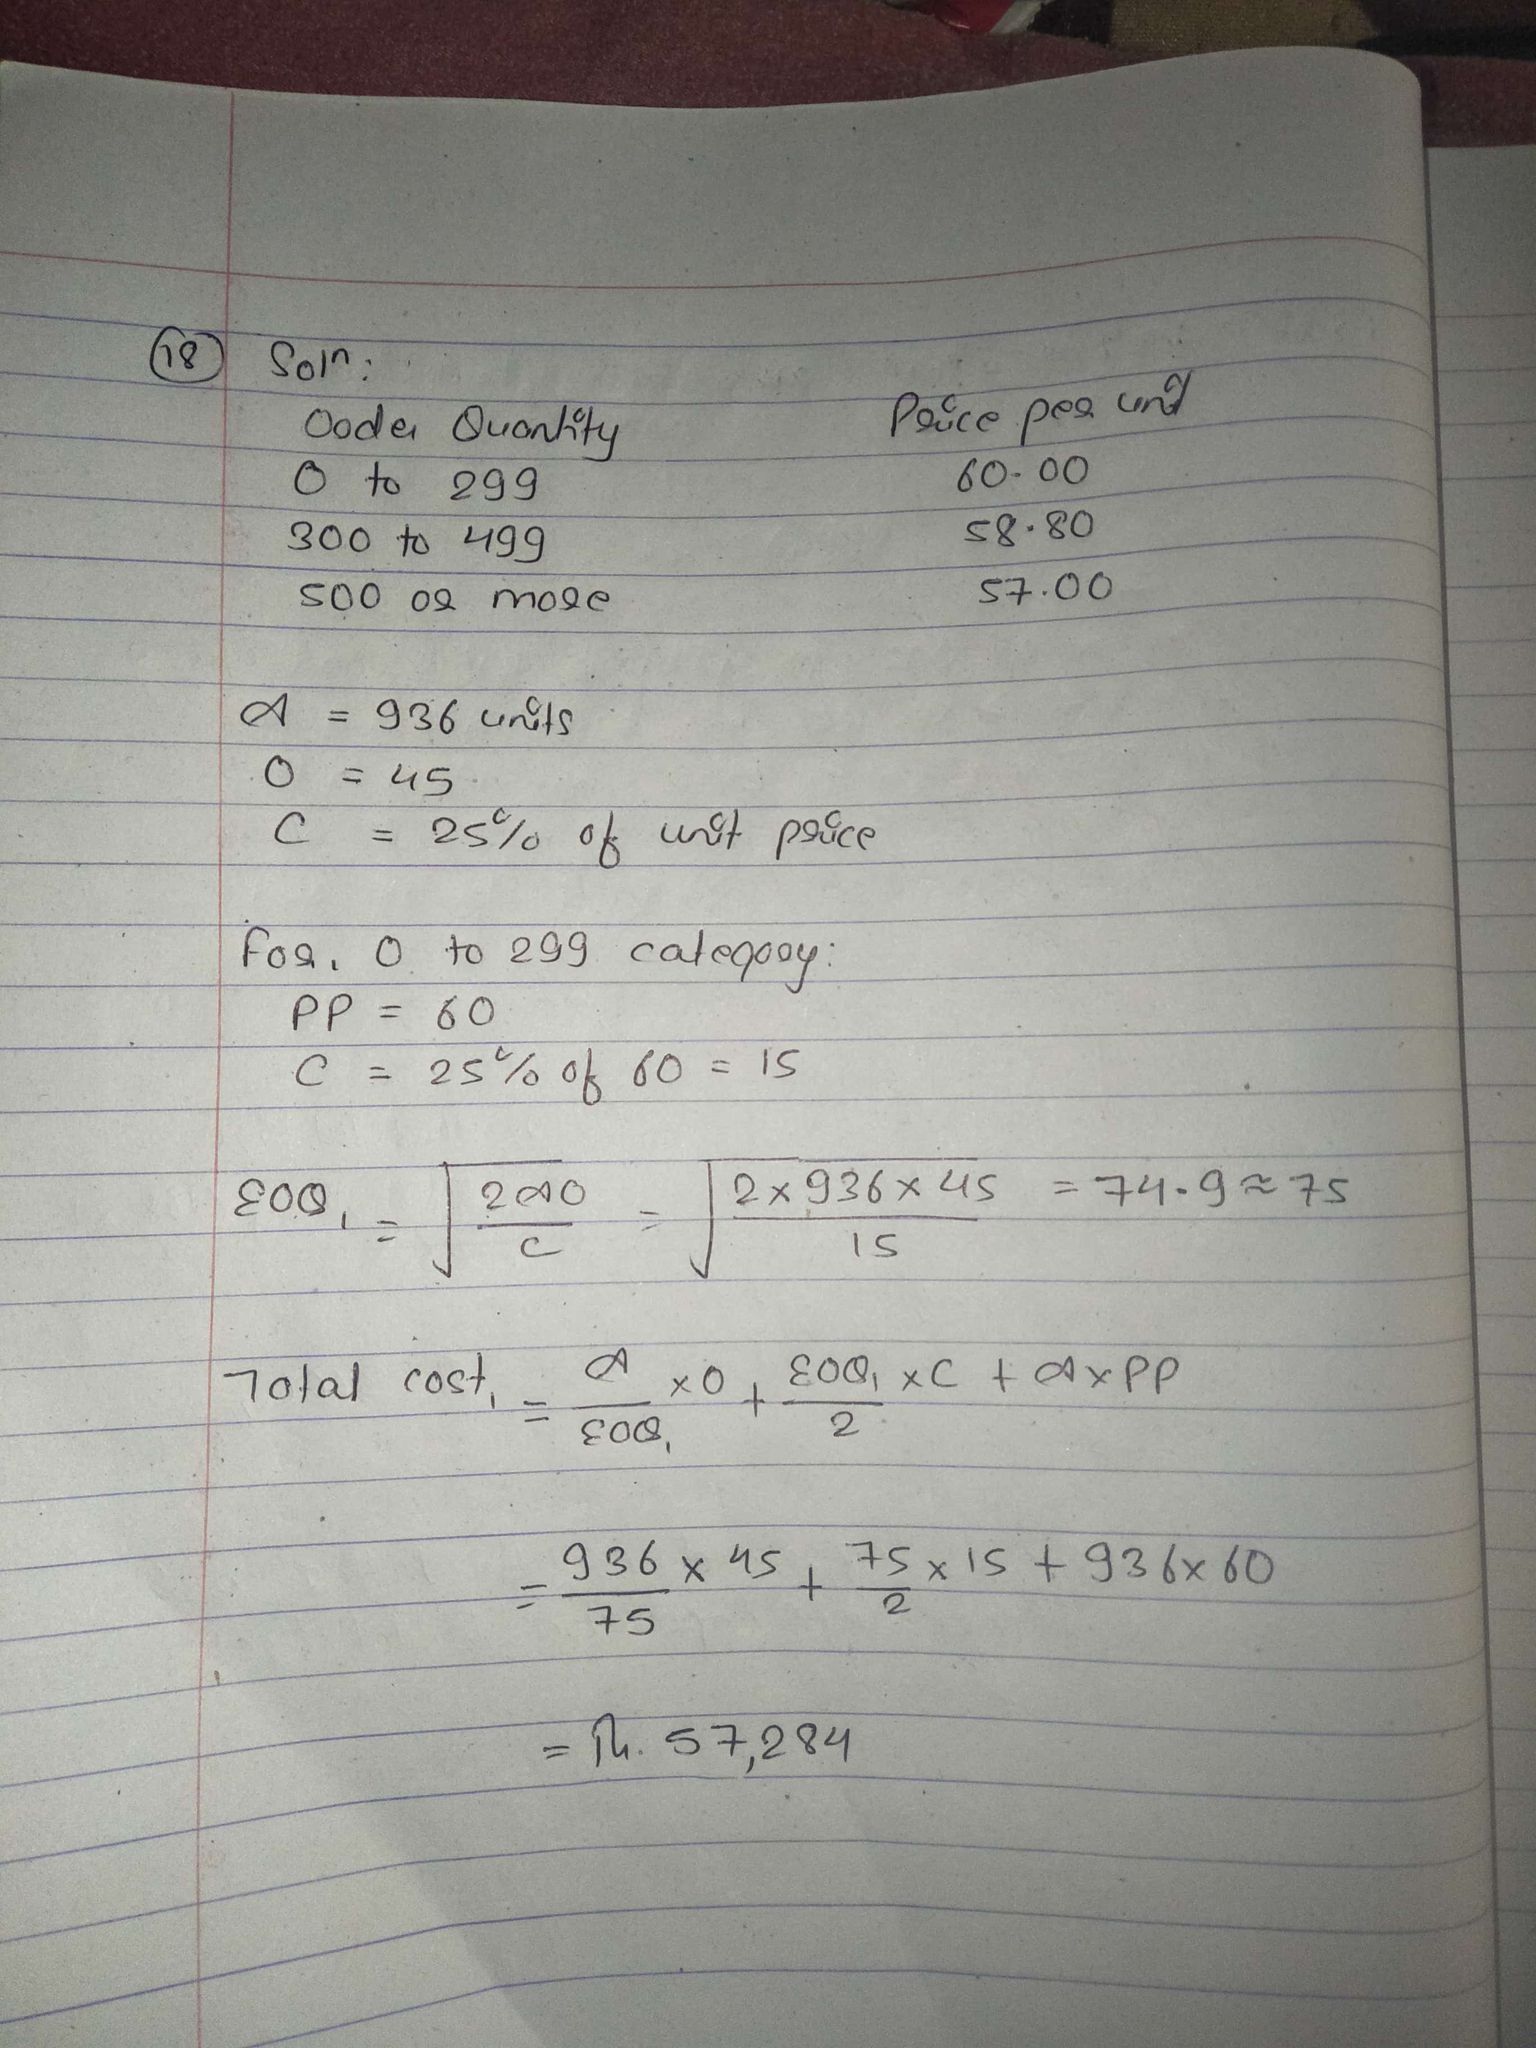 18 Soln:
Order Quantity Price per unit
0 to 299 60.00
300 to 499 58.80
500 or more 57.00
A = 936 units
O = 45
C = 25% of unit price
For, 0 to 299 category:
PP = 60
C = 25% of 60 = 15
EOQ₁ = √(2AO/C) = √(2×936×45/15) = 74.9 ≈ 75
Total cost₁ = A/EOQ₁ × O + EOQ₁/2 × C + A×PP
= 936/75 × 45 + 75/2 × 15 + 936×60
= Rs. 57,284